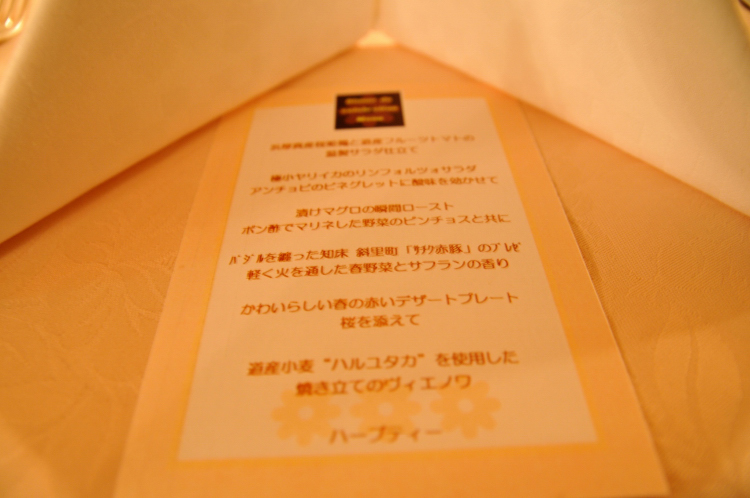 道産フルーツトマトの
サラダ仕立て
極小ヤリイカのリンフォルツォサラダ
アンチョビのビネグレットに酸味を効かせて
漬けマグロの瞬間ロースト
ポン酢でマリネした野菜のピンチョスと共に
ﾊﾞｼﾞﾙを纏った知床 斜里町「ｻﾁｸ赤豚」のブレゼ
軽く火を通した春野菜とサフランの香り
かわいらしい春の赤いデザートプレート
桜を添えて
道産小麦“ハルユタカ”を使用した
焼き立てのヴィエノワ
ハーブティー